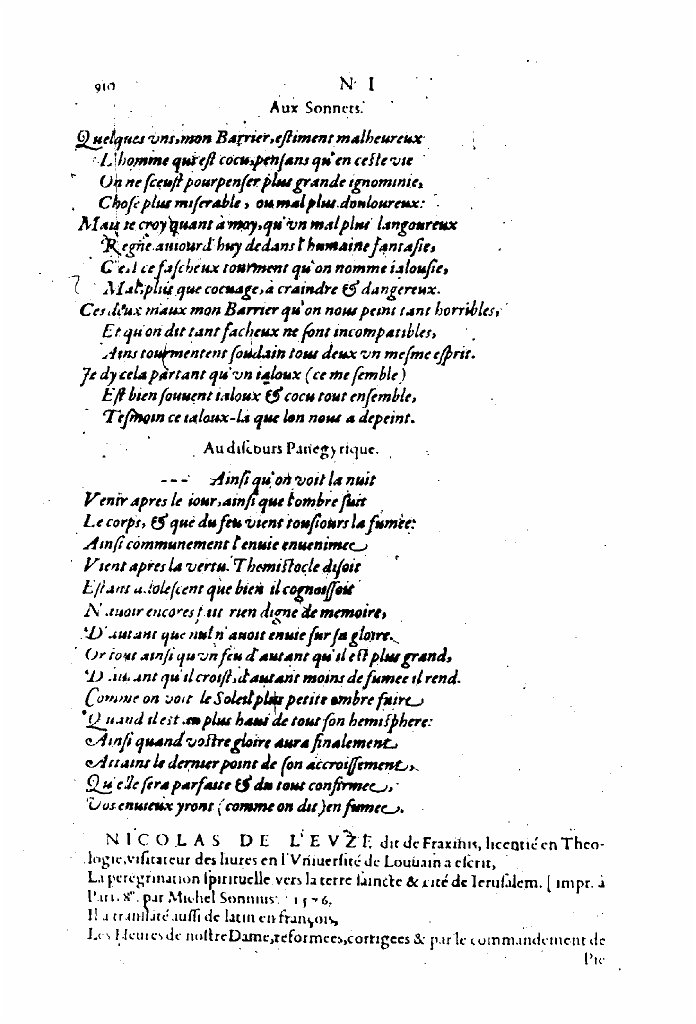 910 N I
Aux Sonnets.
Quelques vns, mon Barrier, estiment malheureux
L'homme qui est cocu, pensans qu'en ceste vie
On ne sceust pourpenser plus grande ignominie,
Chose plus miserable, ou mal plus douloureux:
Mais ie croy quant à moy, qu'vn mal plus langoureux
Regne auiourd'huy dedans l'humaine fantasie,
C'est ce fascheux tourment qu'on nomme ialousie,
Mal plus que cocuage, à craindre & dangereux.
Ces deux maux mon Barrier qu'on nous peint tant horribles,
Et qu'on dit tant facheux ne sont incompatibles,
Ains tourmentent soudain tous deux vn mesme esprit.
Je dy cela partant qu'vn ialoux (ce me semble)
Est bien souuent ialoux & cocu tout ensemble,
Tesmoin ce ialoux-la que lon nous a depeint.
Au discours Panegyrique.
--- Ainsi qu'on voit la nuit
Venir apres le iour, ainsi que l'ombre suit
Le corps, & que du feu vient tousiours la fumée:
Ainsi communement l'enuie enuenimee
Vient apres la vertu. Themistocle disoit
Estant adolescent que bien il cognoissoit
N'auoir encores fait rien digne de memoire,
D'autant que nul n'auoit enuie sur sa gloire.
Or tout ainsi qu'vn feu d'autant qu'il est plus grand,
D'autant qu'il croist, d'autant moins de fumee il rend.
Comme on voit le Soleil plus petite ombre faire
Quand il est au plus haut de tout son hemisphere:
Ainsi quand vostre gloire aura finalement
Attaint le dernier point de son accroissement,
Qu'elle sera parfaite & du tout confirmee,
Vos enuieux yront (comme on dit) en fumee.
NICOLAS DE L'EVZE dit de Fraxinis, licentié en Theo-
logie, visitateur des liures en l'Vniuersité de Louuain a escrit,
La peregrination spirituelle vers la terre saincte & cité de Ierusalem. [impr. à
Pari. 8°. par Michel Sonnius. 1576.
Il a translaté aussi de latin en françois,
Les Heures de nostre Dame, reformees, corrigees & par le commandement de
Pie